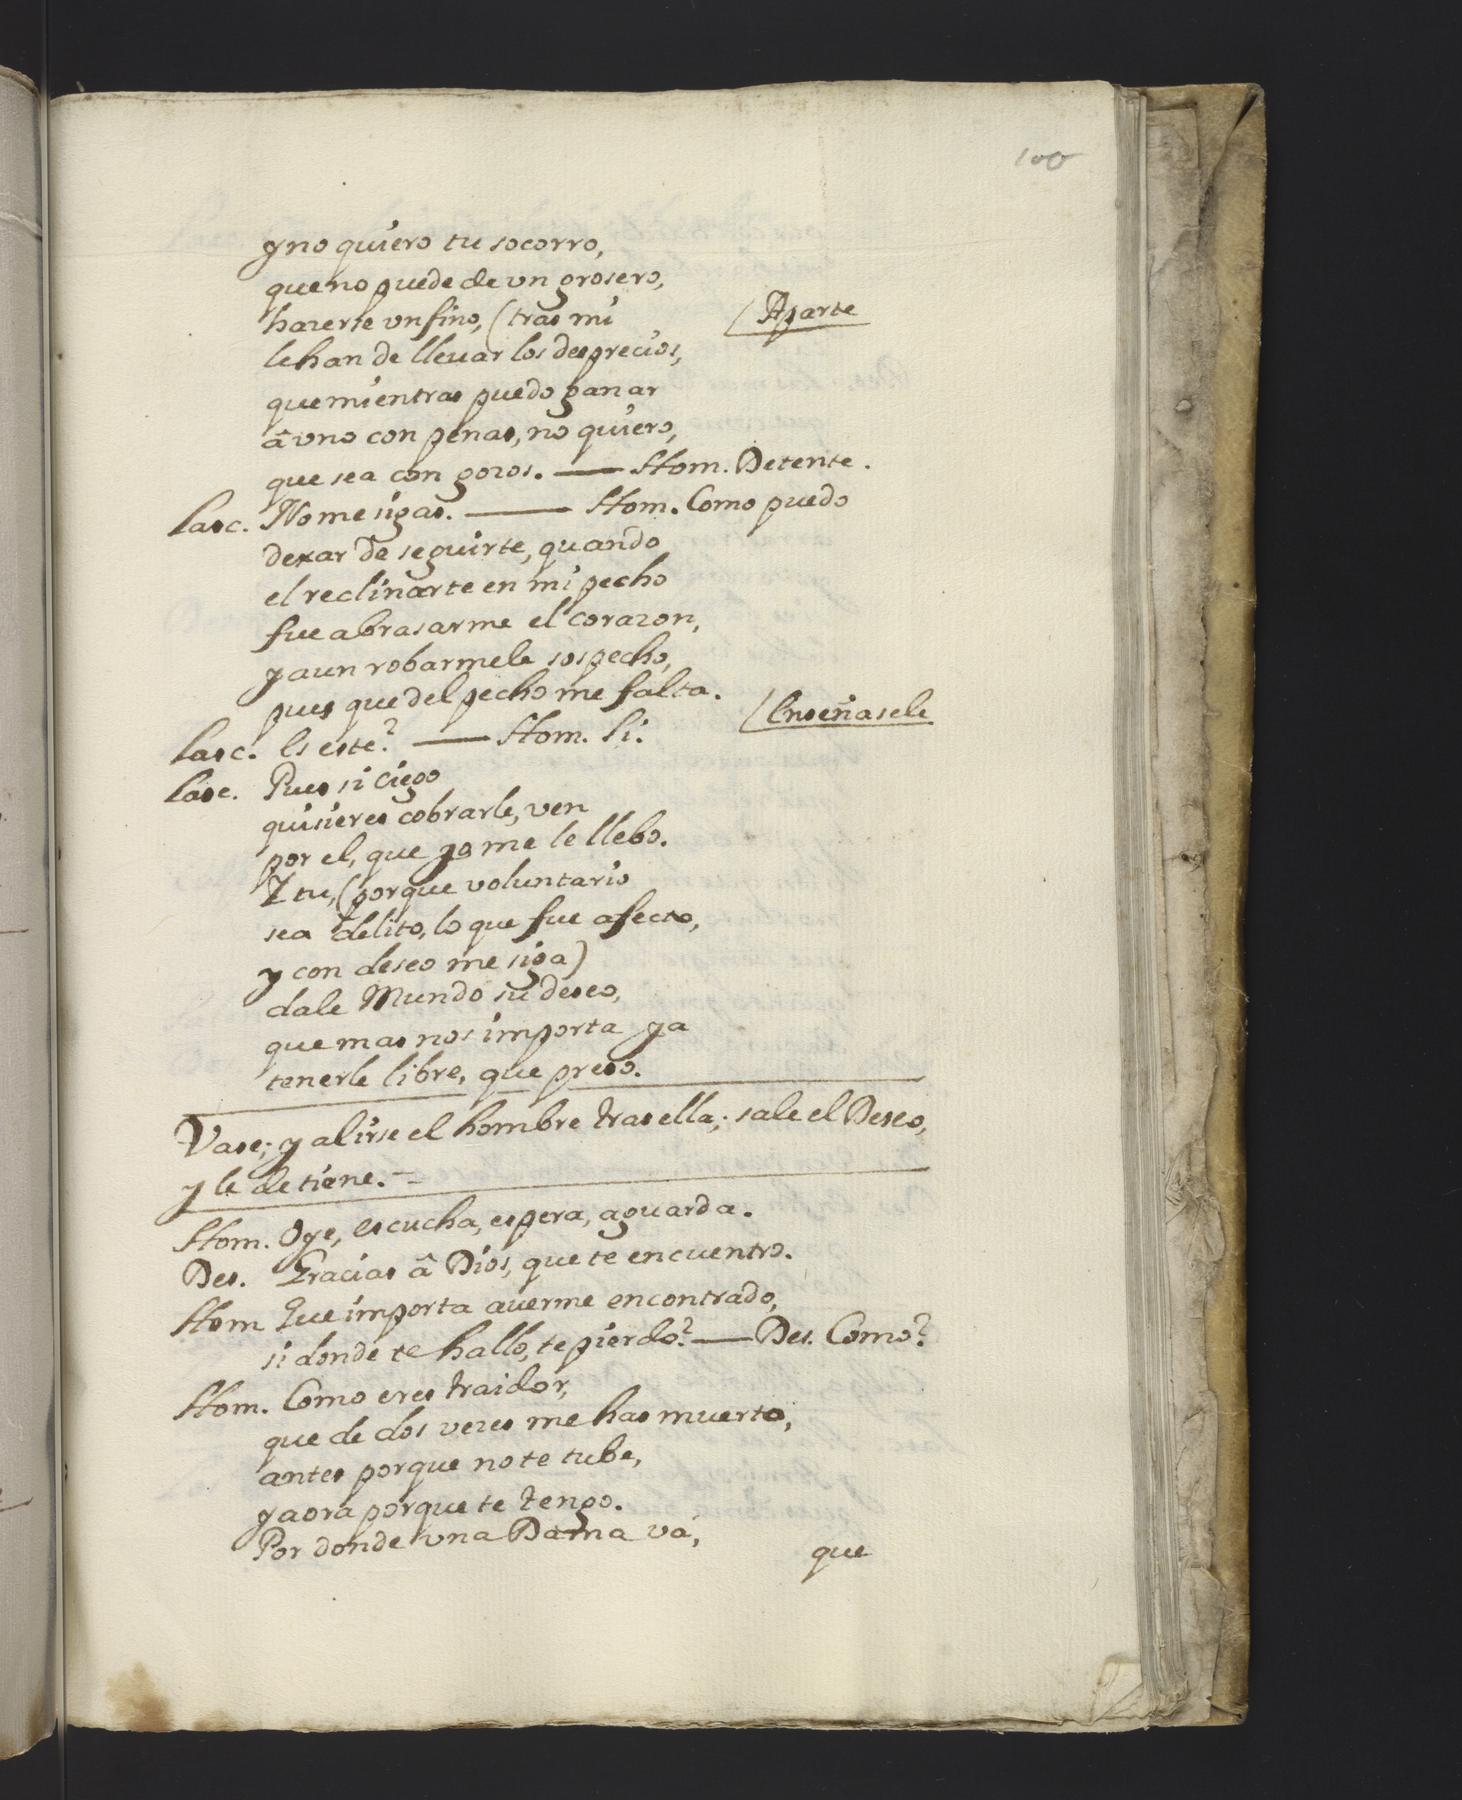 100
y no quiero tu socorro,
que no puede de vn grosero,
hazerse vn fino, (tras mi (Aparte
le han de lleuar los desprecios,
que mientras puedo ganar
â vno con penas, no quiero,
que sea con gozos. — Hom. Detente.
Lasc. No me sigas. — Hom. Como puedo
dexar de seguirte, quando
el reclinarte en mi pecho
fue abrasarme el corazon,
y aun robarmele sospecho,
pues que del pecho me falta.
Lasc. Es este? — Hom. Si. (Enseñasele
Lasc. Pues si ciego
quisieres cobrarle, ven
por el, que yo me le llebo.
Y tu, (porque voluntario
sea delito, lo que fue afecto,
y con deseo me siga)
dale Mundo su deseo,
que mas nos importa ya
tenerle libre, que preso.
Vase; y al irse el hombre tras ella; sale el Deseo,
y le detiene. –
Hom. Oye, escucha, espera, aguarda.
Des. Gracias â Dios, que te encuentro.
Hom Que importa auerme encontrado,
si donde te hallo, te pierdo? — Des. Como?
Hom. Como eres traidor,
que de dos vezes me has muerto,
antes porque no te tube,
y aora porque te tengo.
Por donde vna Dama vá,
que